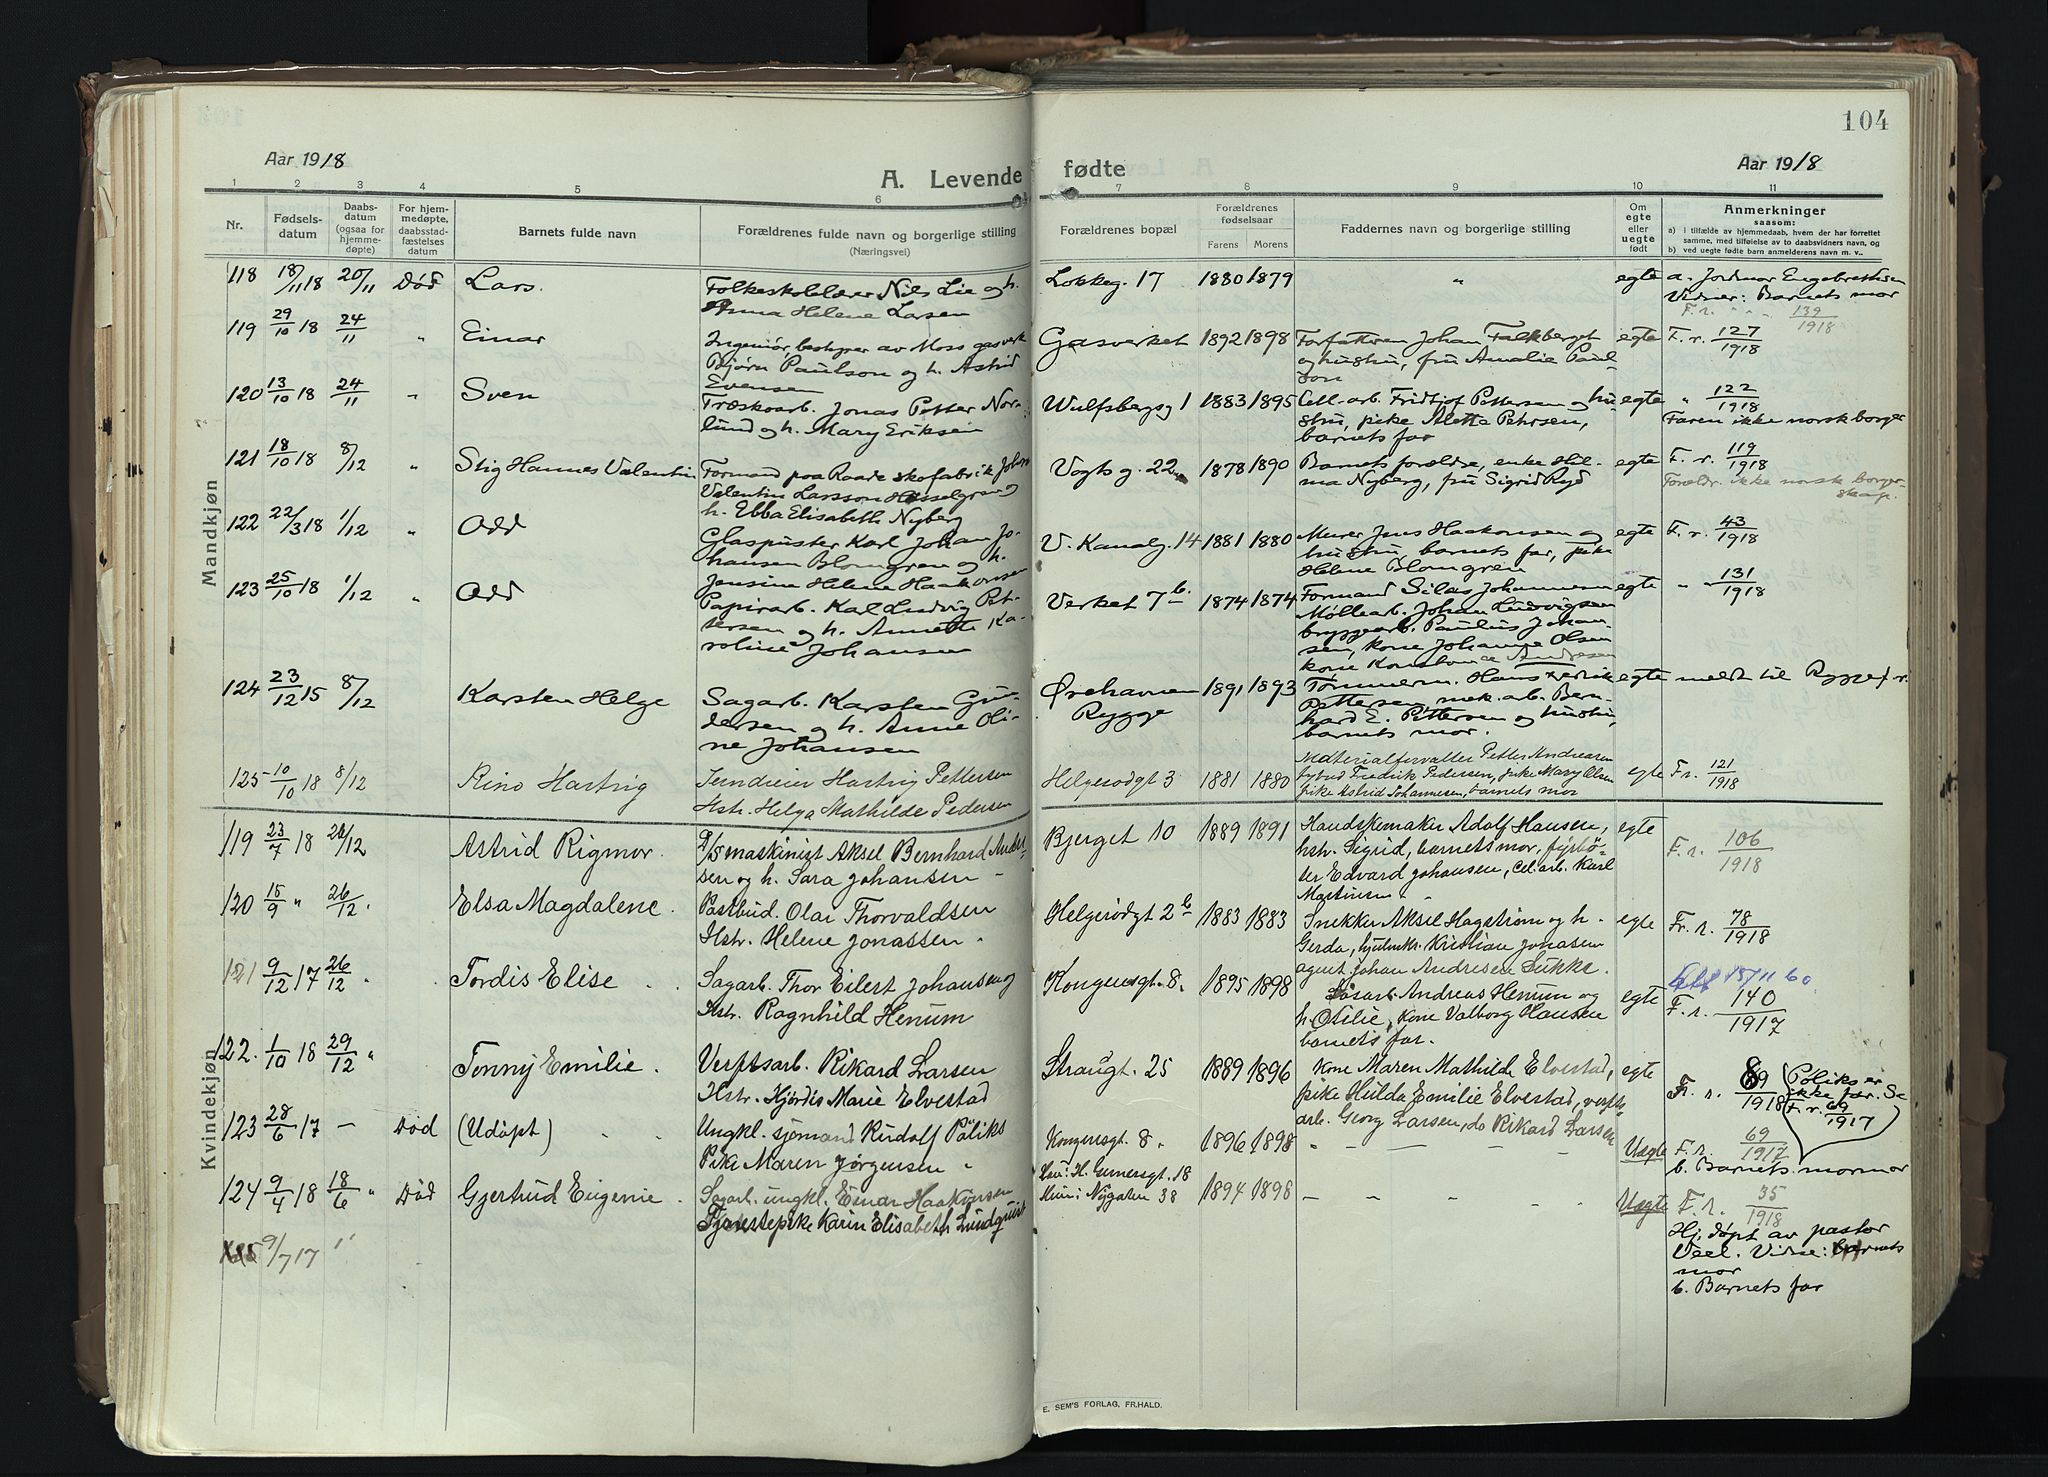 104
Aar 1918
A. Levende fødte
Aar 1918
1 2 3 4 5 6 7 8 9 10 11
Nr.
Fødsels-
datum
Daabs-
datum
(ogsaa for
hjemme-
døpte)
For hjem-
medøpte,
daabsstad-
fæstelses
datum
Barnets fulde navn
Forældrenes fulde navn og borgerlige stilling
(Næringsvei)
Forældrenes bopæl
Forældrenes
fødselsaar
Farens Morens
Faddernes navn og borgerlige stilling
Om
egte
eller
uegte
født
Anmerkninger
saasom:
a) i tilfælde av hjemmedaab, hvem der har forrettet
samme, med tilføielse av to daabsvidners navn, og
b) ved uegte fødte barn anmelderens navn m. v..
Mandkjøn
118 18/11 18 20/11 Død Lars.
Folkeskolelærer Nils Lie og h.
Anna Helene Larsen
Lokkeg. 17 1880 1879 " egte
a. Jordmor Engebretsen
Vidner: Barnets mor
F. r. 139/1918
119 29/10 18 24/11 " Einar
Ingeniør bestyrer av Moss gasverk
Bjørn Paulson og h. Astrid
Evensen
Gasverket 1892 1898
Forfatteren Johan Falkberget
og hustru, fru Amalie Paul-
son
egte F. r. 127/1918
120 13/10 18 24/11 " Sven
Træskoarb. Jonas Petter Nor-
lund og h. Mary Eriksen
Wulfsbergsg 1 1883 1895
Cell-arb. Fridtjof Pettersen og hu-
stru, pike Alette Petersen,
barnets far
egte " 122/1918
Faren ikke norsk borger
121 18/10 18 8/12 " Stig Hannes Valentin
Formand paa Raade skofabrik Johan
Valentin Larsson Hasselgren og
h. Ebba Elisabeth Nyberg
Vogts g. 22 1878 1890
Barnets forældre, enke Hil-
ma Nyberg, frü Sigrid Ryd
egte F. r. 119/1918
Forældr. ikke norsk borger-
skap.
122 22/3 18 1/12 " Odd
Glaspuster Karl Johan Jo-
hansen Blomgren og h.
Jensine Helene Haakonsen
V. Kanalg. 14 1881 1880
Murer Jens Haakonsen og
hustru, barnets far, pike
Helene Blomgren
egte F. r. 43/1918
123 25/10 18 1/12 " Odd
Papirarb. Karl Ludvig Pet-
tersen og h. Annette Ka-
roline Johansen
Verket 7b 1874 1874
Formand Silas Johannesen
Møllearb. Johan Ludvigsen
bryggearb. Paulus Johan-
sen, kone Johanne Olsen
kone Konstance Andresen
egte " 131/1918
124 23/12 15 8/12 Karsten Helge
Sagarb. Karsten Gun-
dersen og h. Anne Oli-
ne Johansen
Ørehavnen
Rygge
1891 1893
Tømmerm. Hans Fredrik
Pettersen, mek. arb. Ben-
hard E. Pettersen og hustru,
barnets mor.
egte meldt til Rygge f. r.
125 10/10 18 8/12 Rino Hartvig
Jerndreier Hartvig Pettersen
Hstr. Helga Mathilde Pedersen
Helgerødgt 3 1881 1880
Materialforvalter Petter Andresen
bybud Fredrik Pedersen, pike Mary Olsen
pike Astrid Johannesen, barnets mor
egte F. r. 121/1918
Kvindekjøn
119 23/7 18 26/12 Astrid Rigmor.
D/S maskinist Aksel Bernhard Ander-
sen og h. Sara Johansen
Bjerget 10 1889 1891
Handskemaker Adolf Hansen,
hstr. Sigrid, barnets mor, fyrbø-
ter Edvard Johansen, Cel. arb. Karl
Martinsen
egte F. r. 106/1918
120 15/9 " 26/12. Elsa Magdalene.
Postbud. Olar Thorvaldsen
Hstr. Helene Jonassen.
Helgerødgt 2b 1883 1883
Snekker Aksel Hagstrøm og h.
Gerda, Kristian Jonasen
agent Johan Andresen Lukke.
egte Fr. r. 78/1918
121 9/12 17 26/12 " Tordis Elise
Sagarb. Thor Eilert Johansen og
Hstr. Ragnhild Henum
Kongensgt. 8. 1895 1898
Andreas Henum og
h. Otilie, kone Valborg Hansen
barnets far.
egte 15/11 60
F. r. 140/1917
122. 1/10 18 29/12 " Tonny Emilie.
Verftsarb. Rikard Larsen
Hstr. Hjørdis Marie Elvestad
Strandgt. 25 1889 1896
Kone Maren Mathilde Elvestad,
pike Hilda Emilie Elvestad, verfts-
arb. Georg Larsen, do Rikard Larsen
egte Fr. r. 89/1918
(Poliks er
ikke far. Se
F. r. 69/1917
123 28/6 17 — Død (Udøpt)
Ungkl. sjømand Rudolf Poliks
Pike Maren Jørgensen
Kongensgt 8. 1896 1898
Hun: H. Gernersgt. 18
Uegte F. r. 69/1917
b. Barnets mormor
124 9/4 18 18/6 " Død Gjertrud Eugenie.
Sagarb. ungkl. Einar Haakonsen
Tjenestepike Karin Elisabeth Lundquist
Hun: Nygaten 38 1894 1896
Uegte F. r. 35/1918
Hj. døpt av pastor
Veel. Vidne: barnets
mor
b. Barnets far
9/7 17
E. SEM'S FORLAG, FR.HALD.